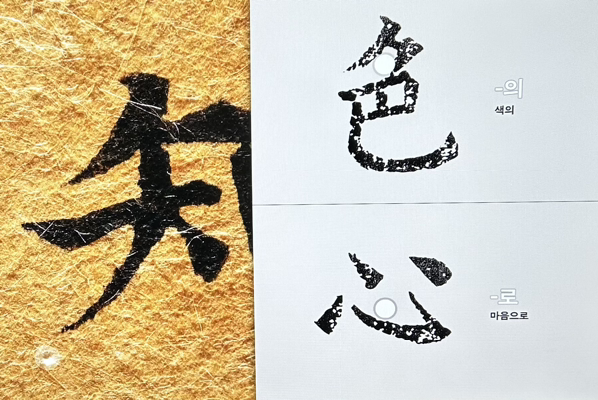 色
-의
색의
心
-로
마음으로